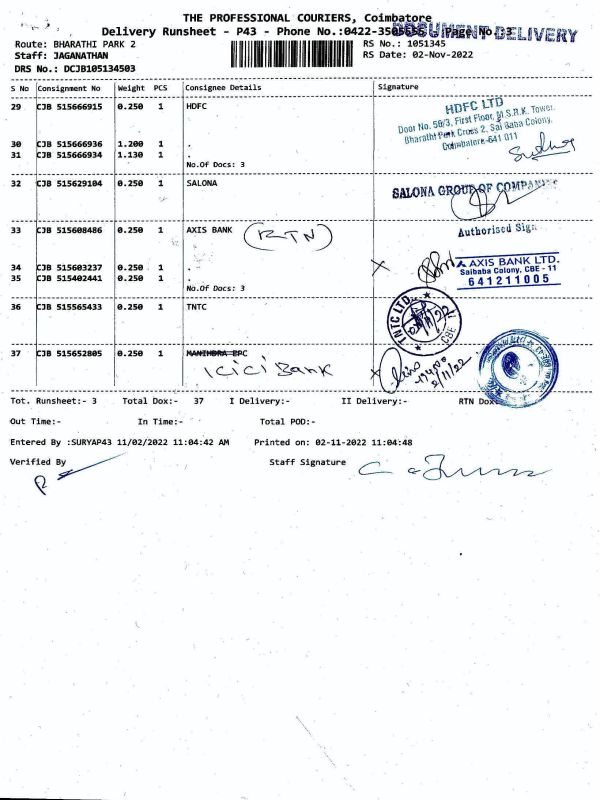 THE PROFESSIONAL COURIERS, Coimbatore
Delivery Runsheet - P43 - Phone No.:0422-3505555 Page No. 3
DOCUMENT DELIVERY
Route: BHARATHI PARK 2
RS No.: 1051345
Staff: JAGANATHAN
RS Date: 02-Nov-2022
DRS No.: DCJB105134503
S No Consignment No Weight PCS Consignee Details Signature
29 CJB 515666915 0.250 1 HDFC
HDFC LTD
Door No. 58/3, First Floor, M.S.R.K. Tower,
Bharathi Park Cross 2, Sai Baba Colony,
Coimbatore-641 011
30 CJB 515666936 1.200 1 .
31 CJB 515666934 1.130 1 .
No.Of Docs: 3
32 CJB 515629104 0.250 1 SALONA
SALONA GROUP OF COMPANIES
33 CJB 515608486 0.250 1 AXIS BANK (RTN)
Authorised Sign
34 CJB 515603237 0.250 1 .
35 CJB 515402441 0.250 1 .
No.Of Docs: 3
AXIS BANK LTD.
Saibaba Colony, CBE - 11
641211005
36 CJB 515565433 0.250 1 TNTC
TNTC LTD.
CBE
37 CJB 515652805 0.250 1 MAHINDRA EPC
ICICI Bank
2/11/22
Tot. Runsheet:- 3 Total Dox:- 37 I Delivery:- II Delivery:- RTN Dox
Out Time:- In Time:- Total POD:-
Entered By :SURYAP43 11/02/2022 11:04:42 AM Printed on: 02-11-2022 11:04:48
Verified By Staff Signature